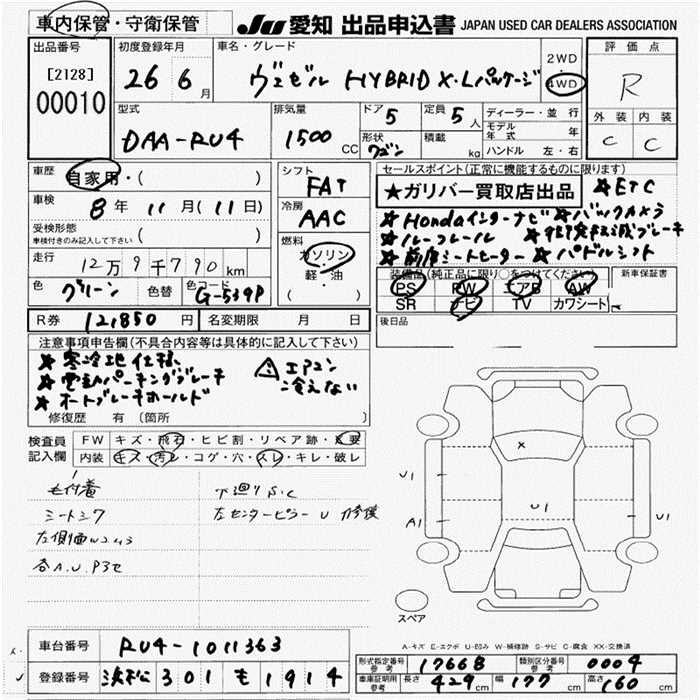 車内保管・守衛保管
JU 愛知 出品申込書 JAPAN USED CAR DEALERS ASSOCIATION
出品番号
[2128]
00010
初度登録年月
26 6月
車名・グレード
ヴェゼル HYBRID X・Lパッケージ
2WD
・
4WD
評価点
R
型式
DAA-RU4
排気量
1500 CC
ドア 5
形状 ワゴン
定員 5人
積載 kg
ディーラー・並行
モデル年式 年
ハンドル 左・右
外装 内装
C C
車歴 自家用・( )
車検 8年 11月(11日)
受検形態
車検付きのみ記入して下さい ( )
走行 12万9千790km
色 グリーン 色替 色コード G-539P
シフト
FAT
冷房
AAC
燃料
ガソリン
軽・油
( )
セールスポイント(正常に機能するものに限ります)
★ガリバー買取店出品 ★ETC
★Hondaインターナビ ★バックカメラ
★ルーフレール ★衝突軽減ブレーキ
★前席シートヒーター ★パドルシフト
装備品(純正品に限り○をつけてください) 新車保証書
PS PW エアB AW
SR ナビ TV カワシート
R券 12,850円 名変期限 月 日
後日品
注意事項申告欄(不具合内容等は具体的に記入して下さい)
★寒冷地仕様
★電動パーキングブレーキ
★オートブレーキホールド
⚠エアコン
冷えない
修復歴 有 (箇所 )
検査員
記入欄
FW キズ・飛石・ヒビ割・リペア跡・X要
内装 キズ・汚レ・コゲ・穴・スレ・キレ・破レ
シートシワ
下廻りS.C
左センターピラーU 修後
各A.U.Pヨセ
X
U1
U1
A1
U1
スペア
A-キズ E-エクボ U-凹み W-補修跡 S-サビ C-腐食 XX-交換済
車台番号 RU4-1011363
登録番号 浜松 301 も 1914
形式指定番号 参考 17668 類別区分番号 参考 0004
車庫証明用 参考 長さ 429cm 幅 177cm 高さ 160cm